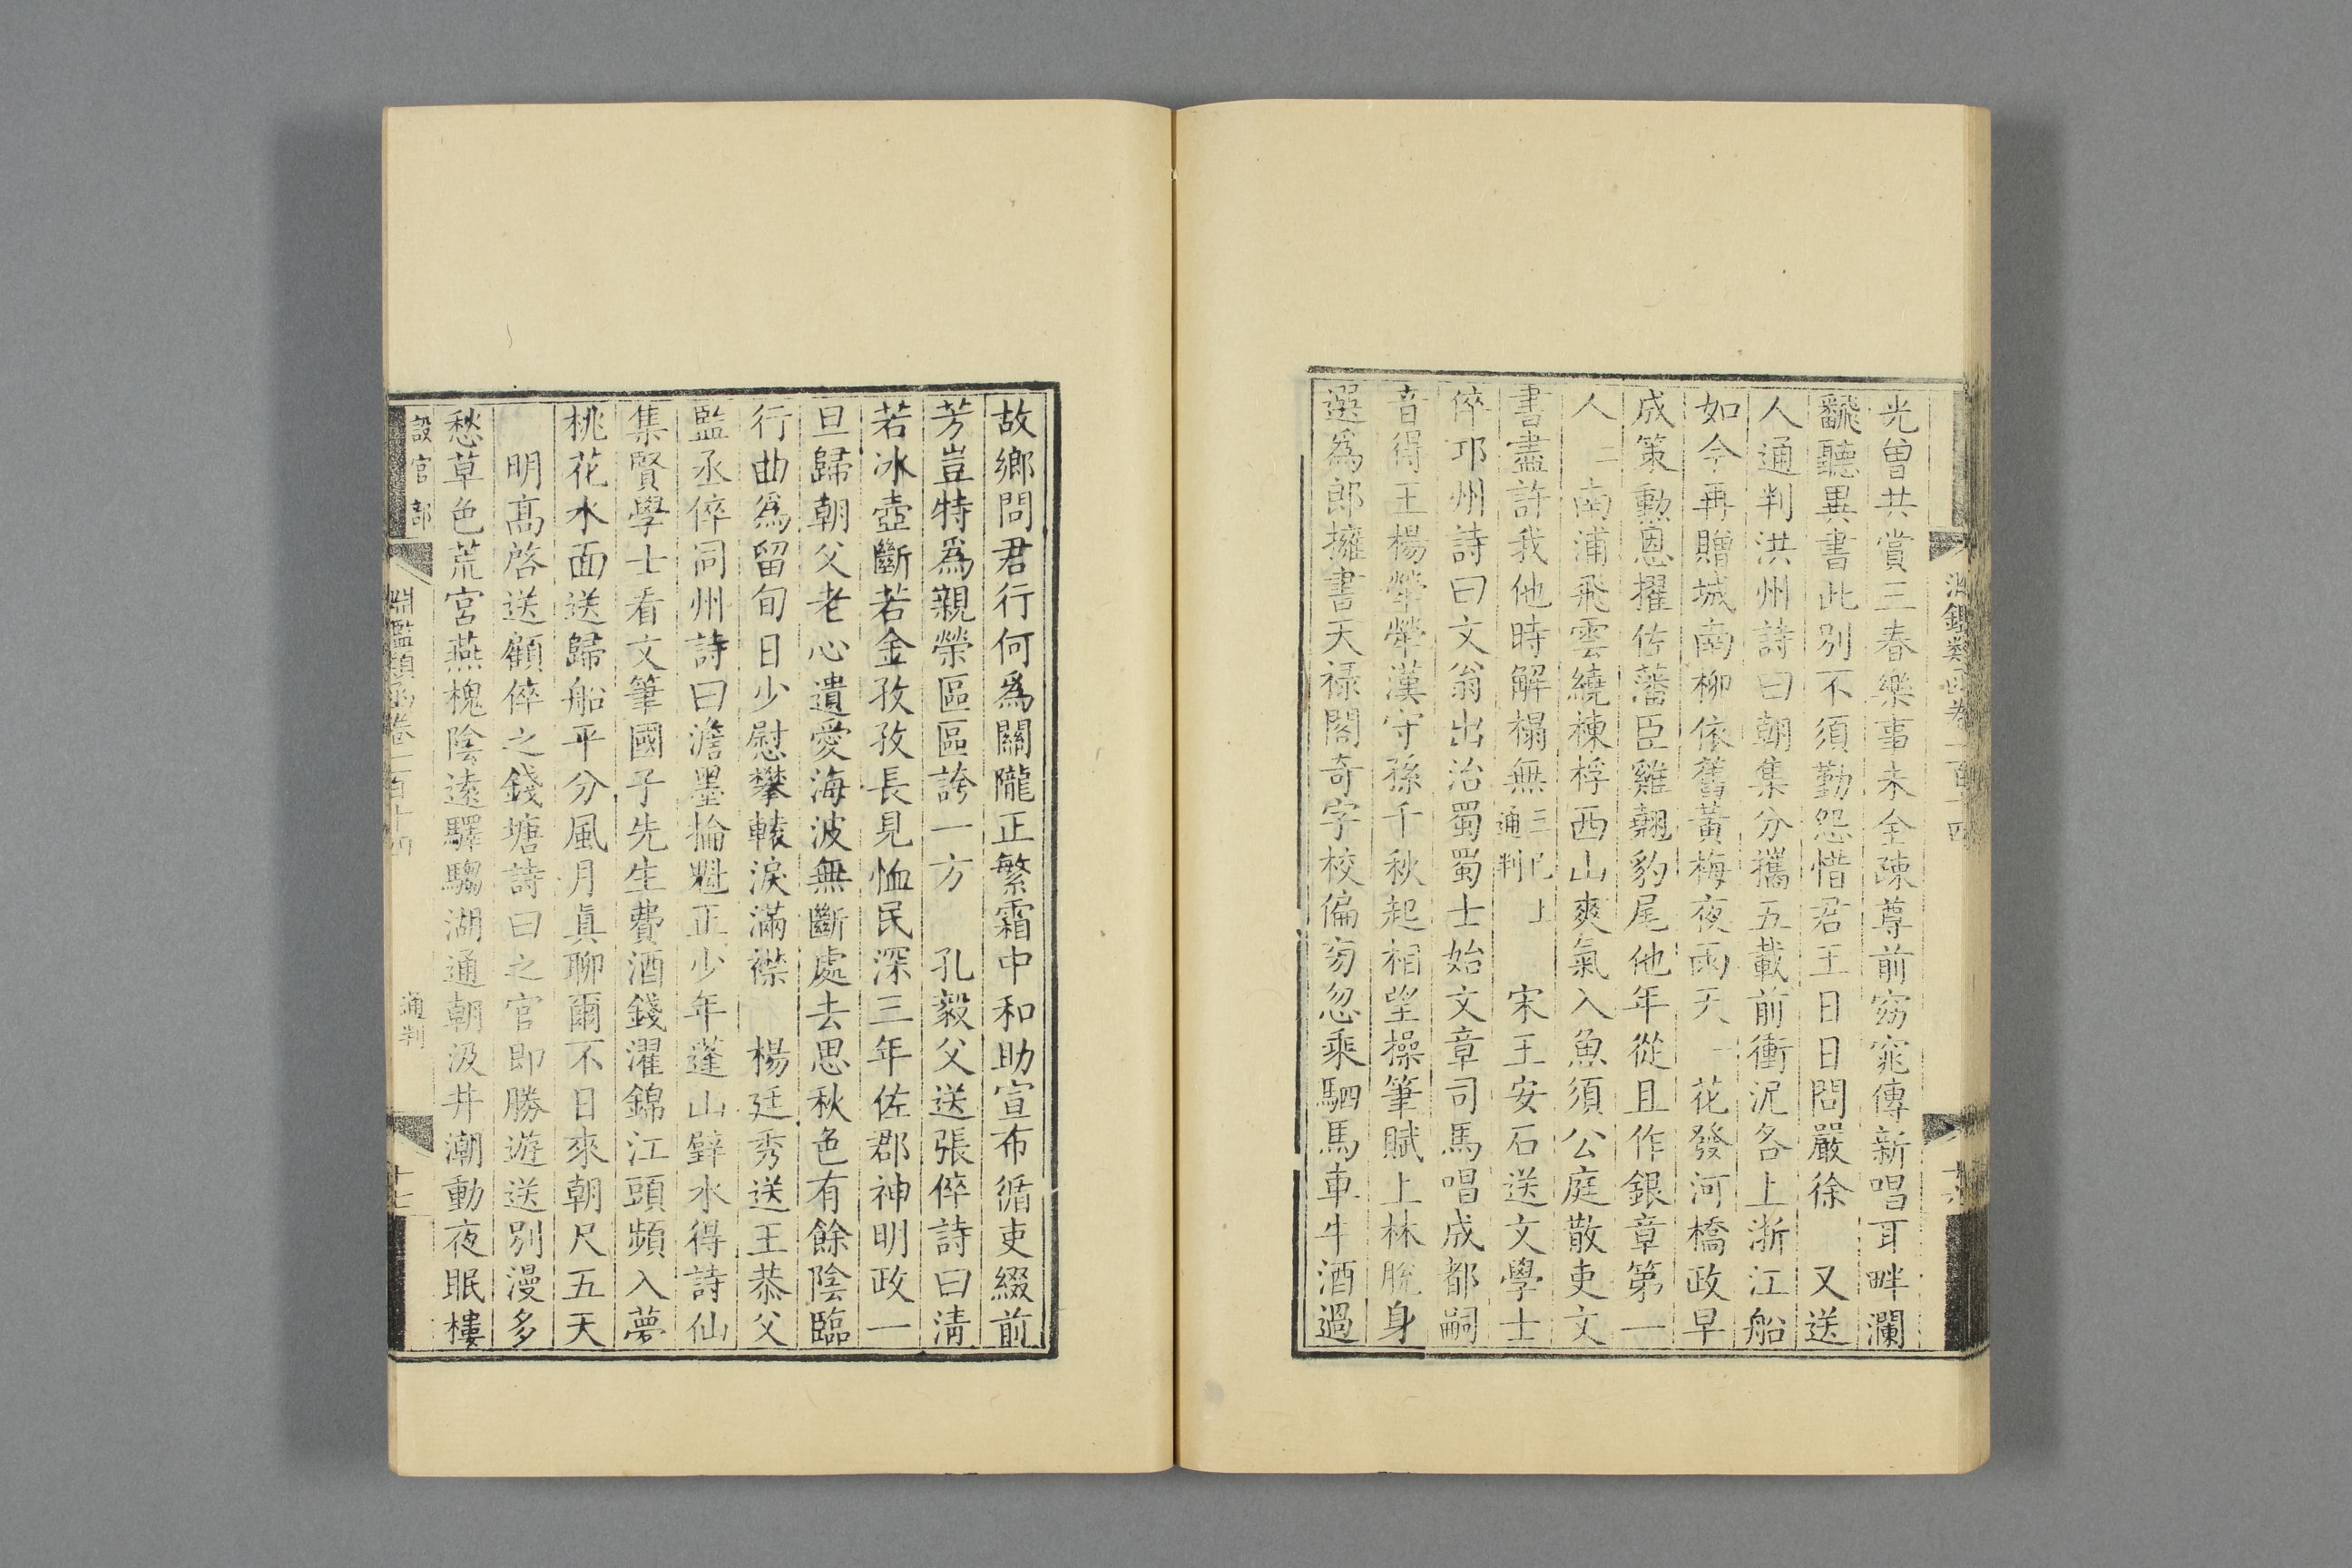 光曾共賞三春樂事未全疎尊前窈窕傳新唱耳畔瀾
飜聽異書此别不須勤怨惜君王日日問嚴徐　又送
人通判洪州詩曰朝集分攜五載前衝泥各上浙江船
如今再贈城南柳依舊黃梅夜雨天一花發河橋政早
成策勳恩擢佐藩臣雞翹豹尾他年從且作銀章第一
人二南浦飛雲繞棟桴西山爽氣入魚須公庭散吏文
書盡許我他時解榻無三已上通判　宋王安石送文學士
倅邛州詩曰文翁出治蜀蜀士始文章司馬唱成都嗣
音得王楊犖犖漢守孫千秋起相望操筆賦上林脫身
選爲郎擁書天祿閣奇字校偏旁忽乘駟馬車牛酒過
故鄉問君行何爲關隴正繁霜中和助宣布循吏綴前
芳豈特爲親榮區區誇一方　孔毅父送張倅詩曰淸
若冰壺斷若金孜孜長見恤民深三年佐郡神明政一
旦歸朝父老心遺愛海波無斷處去思秋色有餘陰臨
行曲爲留旬日少慰攀轅淚滿襟　楊廷秀送王恭父
監丞倅同州詩曰澹墨掄魁正少年蓬山璧水得詩仙
集賢學士看文筆國子先生費酒錢濯錦江頭頻入夢
桃花水面送歸船平分風月眞聊爾不日來朝尺五天
明高啓送顧倅之錢塘詩曰之官即勝遊送别漫多
愁草色荒宮燕槐陰遠驛騶湖通朝汲井潮動夜眠樓
設官部
淵鑑類函卷一百十四
通判
十七